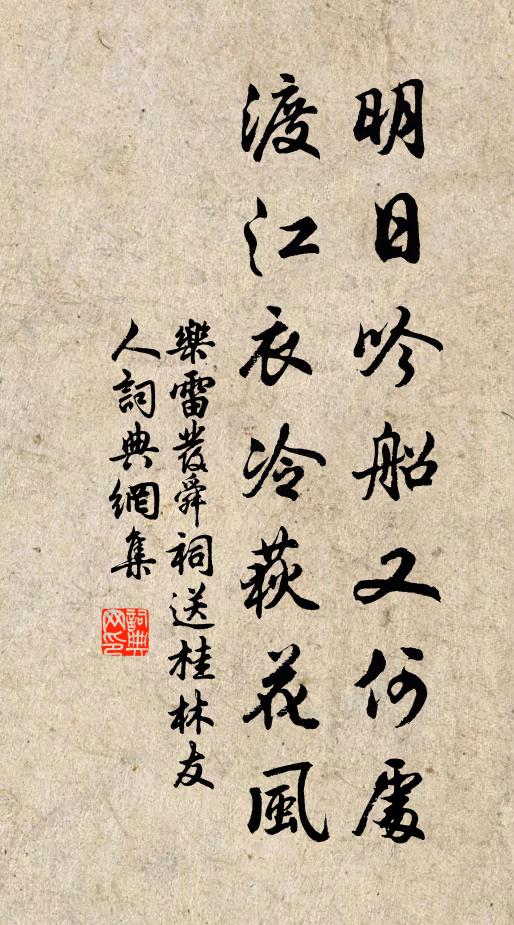 明日吟船又何處
渡江衣冷荻花風
樂雷發舜祠送桂林友
人詞典網集
詞典
网印